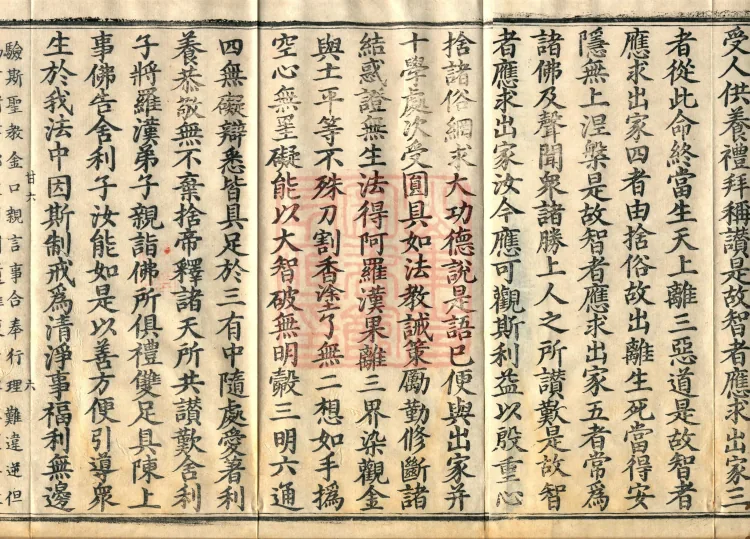 受人供養禮拜稱讚是故智者應求出家三
者從此命終當生天上離三惡道是故智者
應求出家四者由捨俗故出離生死當得安
隱無上涅槃是故智者應求出家五者常為
諸佛及聲聞衆諸勝上人之所讚歎是故智
者應求出家汝今應可觀斯利益以殷重心
捨諸俗網求大功德說是語已便與出家并
十學處次受圓具如法教誡策勵勤修斷諸
結惑證無生法得阿羅漢果離三界染觀金
與土平等不殊刀割香塗了無二想如手撝
空心無罣礙能以大智破無明㲉三明六通
四無礙辯悉皆具足於三有中隨處愛著利
養恭敬無不棄捨帝釋諸天所共讚歎舍利
子將羅漢弟子親詣佛所俱禮雙足具陳上
事佛告舍利子汝能如是以善方便引導衆
生於我法中因斯制戒爲清淨事福利無邊
廿六 六
驗斯聖教金口親言事合奉行理難違逆但